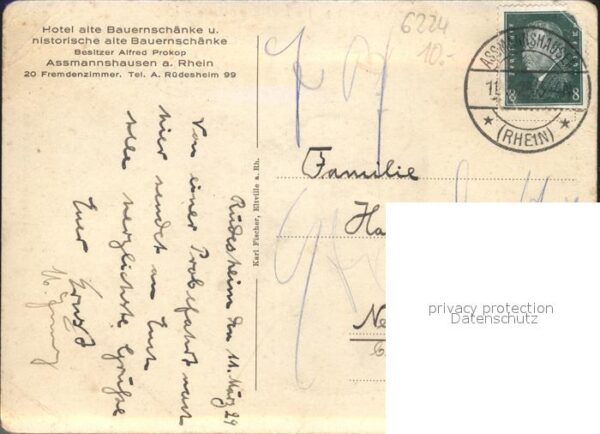 Hotel alte Bauernschänke u.
historische alte Bauernschänke
Besitzer Alfred Prokop
Assmannshausen a. Rhein
20 Fremdenzimmer. Tel. A. Rüdesheim 99
6224
10.-
DEUTSCHES REICH
8 8
ASSMANNSHAUSEN
11
(RHEIN)
Rüdesheim den 11. März 29
Von einer Probefahrt nach
hier sendet an Euch
alle herzlichste Grüße
Euer Ernst
Karl Fischer, Eltville a. Rh.
Familie
Ha
Ne
privacy protection
Datenschutz